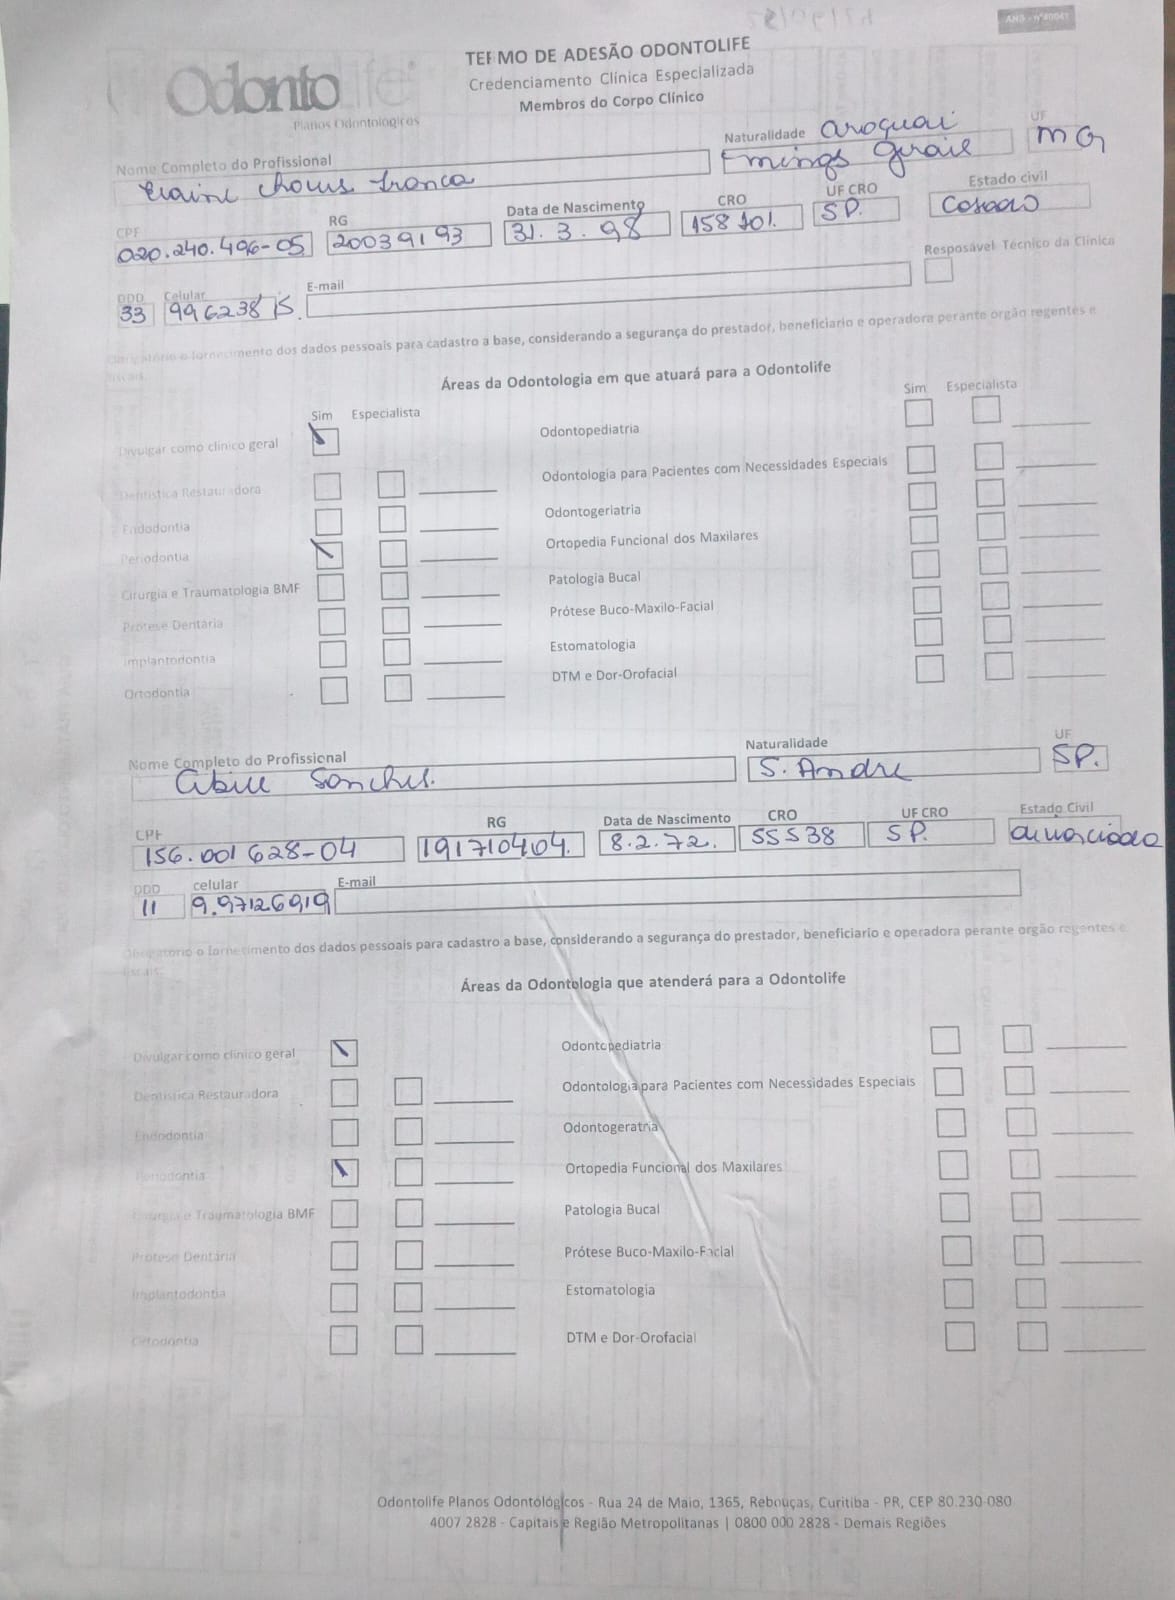 ANS - nº40041
TERMO DE ADESÃO ODONTOLIFE
Credenciamento Clínica Especializada
Membros do Corpo Clínico
Odontolife
Planos Odontológicos
Naturalidade
UF
Nome Completo do Profissional
minas gerais
MG
CPF
RG
Data de Nascimento
CRO
UF CRO
Estado civil
020.240.496-05
20039193
31.3.98
158101.
SP.
casado
Resposável Técnico da Clínica
DDD
Celular
E-mail
33
Obrigatório o fornecimento dos dados pessoais para cadastro a base, considerando a segurança do prestador, beneficiario e operadora perante orgão regentes e
fiscais.
Áreas da Odontologia em que atuará para a Odontolife
Sim Especialista
Sim Especialista
Divulgar como clínico geral
Odontopediatria
Dentística Restauradora
Odontologia para Pacientes com Necessidades Especiais
Endodontia
Odontogeriatria
Periodontia
Ortopedia Funcional dos Maxilares
Cirurgia e Traumatologia BMF
Patologia Bucal
Prótese Dentária
Prótese Buco-Maxilo-Facial
Implantodontia
Estomatologia
Ortodontia
DTM e Dor-Orofacial
Nome Completo do Profissional
Naturalidade
UF
Sanches.
S. Andre
SP.
CPF
RG
Data de Nascimento
CRO
UF CRO
Estado Civil
156.001 628-04
191710404.
8.2.72.
55538
SP.
divorciada
DDD
celular
E-mail
11
9.97126919
Obrigatório o fornecimento dos dados pessoais para cadastro a base, considerando a segurança do prestador, beneficiario e operadora perante orgão regentes e
fiscais.
Áreas da Odontologia que atenderá para a Odontolife
Divulgar como clínico geral
Odontopediatria
Dentística Restauradora
Odontologia para Pacientes com Necessidades Especiais
Endodontia
Odontogeratria
Periodontia
Ortopedia Funcional dos Maxilares
Cirurgia e Traumatologia BMF
Patologia Bucal
Prótese Dentária
Prótese Buco-Maxilo-Facial
Implantodontia
Estomatologia
Ortodontia
DTM e Dor-Orofacial
Odontolife Planos Odontológicos - Rua 24 de Maio, 1365, Rebouças, Curitiba - PR, CEP 80.230-080
4007 2828 - Capitais e Região Metropolitanas | 0800 000 2828 - Demais Regiões